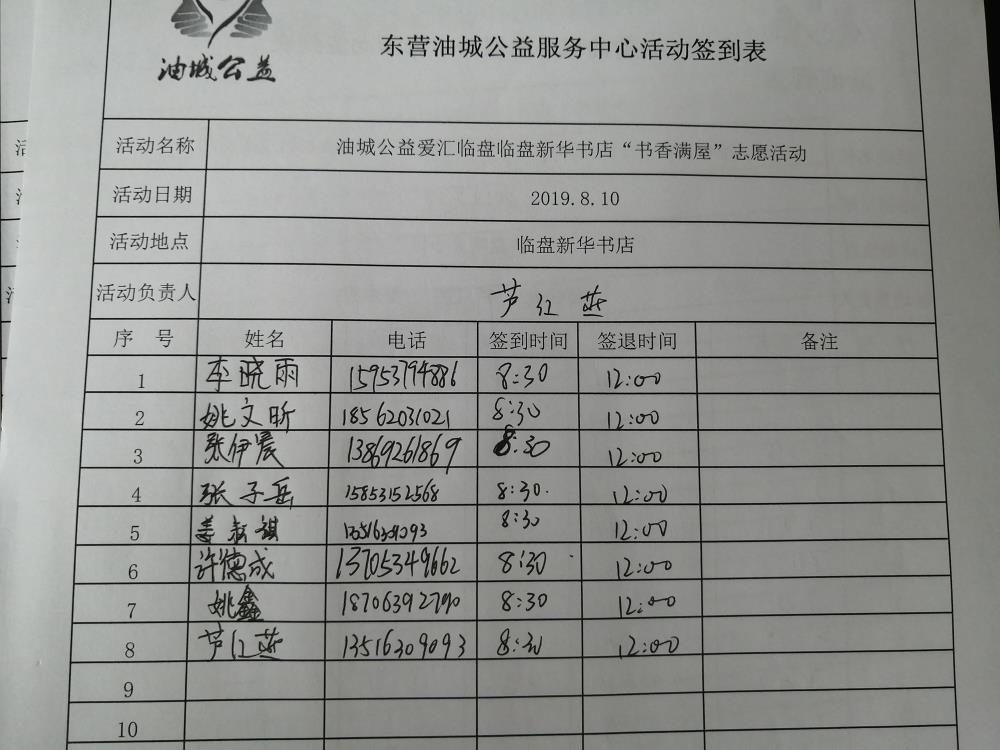 油城公益
东营油城公益服务中心活动签到表
活动名称 油城公益爱汇临盘临盘新华书店“书香满屋”志愿活动
活动日期 2019.8.10
活动地点 临盘新华书店
活动负责人 芦江燕
序号 姓名 电话 签到时间 签退时间 备注
1 李晓雨 15953794886 8:30 12:00
2 姚文昕 18562031021 8:30 12:00
3 张伊晨 13869261869 8:30 12:00
4 张子岳 15853152568 8:30. 12:00
5 姜 祺 8:30 12:00
6 许德成 13705349662 8:30 12:00
7 姚鑫 18706392790 8:30 12:00
8 芦江燕 13516309093 8:30 12:00
9
10